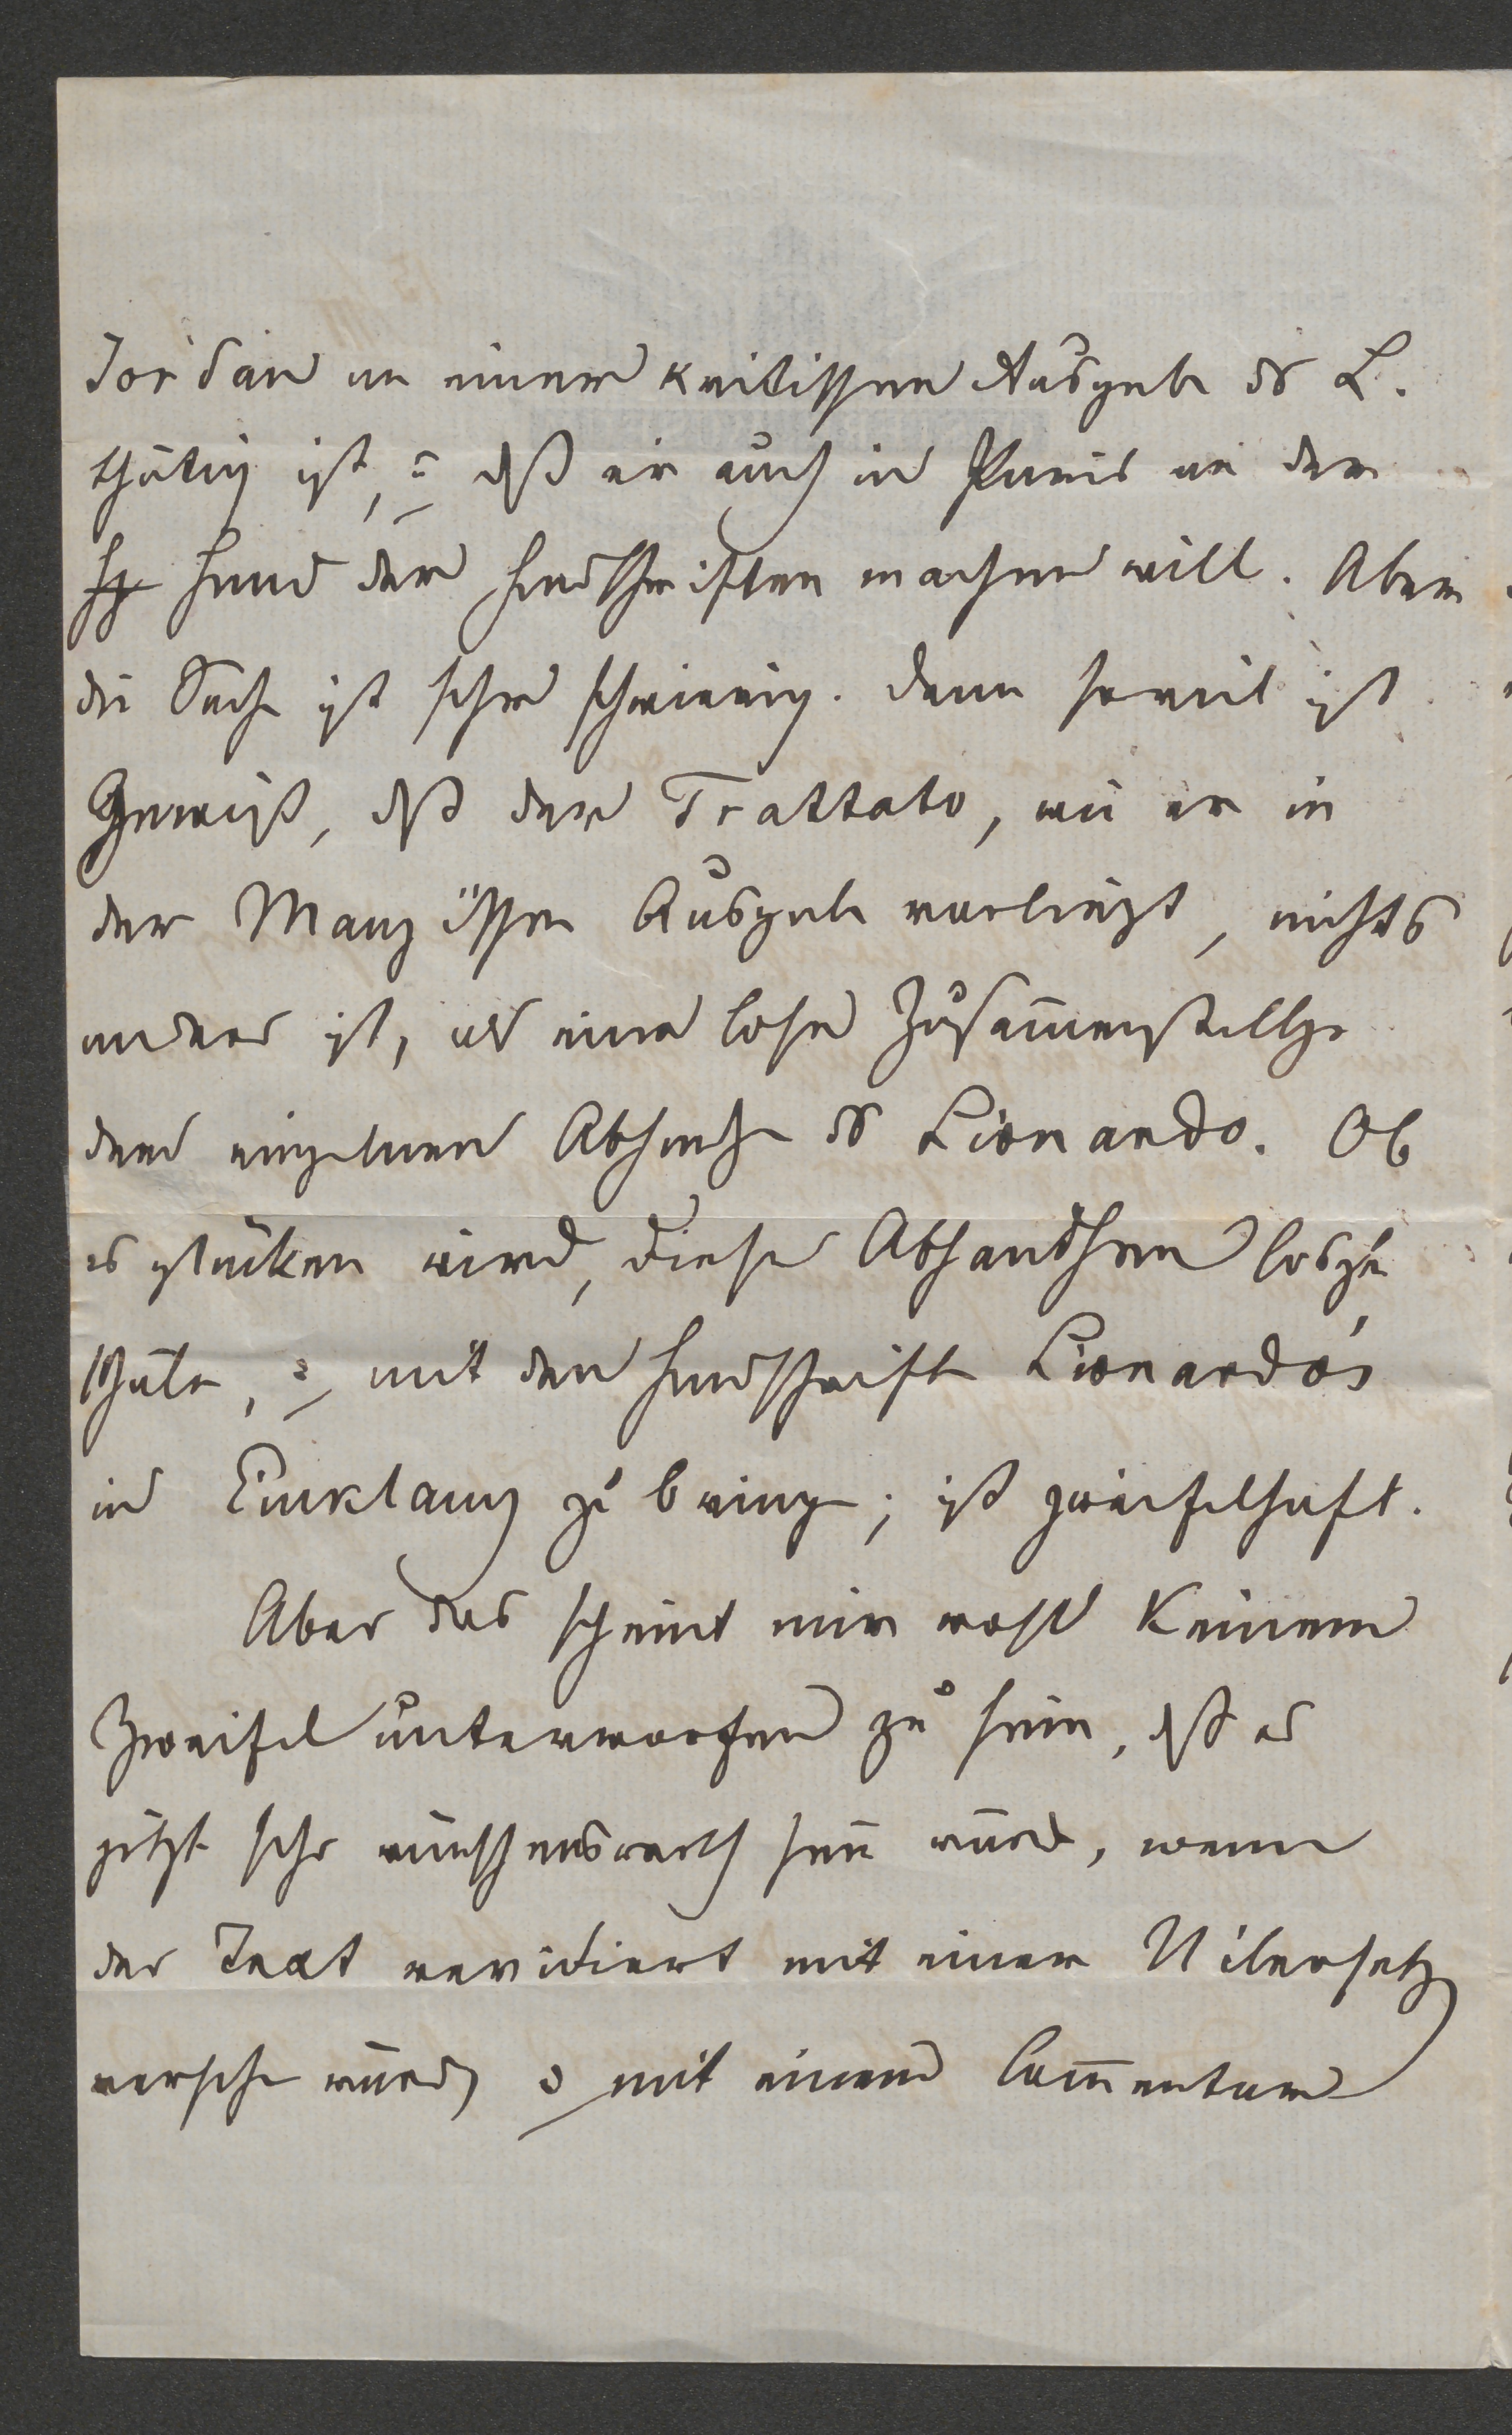 Jordan an einer kritischen Ausgabe ds L.
thätig ist, u dß er auch in Paris an der
Hand der Handschriften machen will. Aber
die Sache ist sehr schwierig. Denn soviel ist
Gewiß, dß der Trattato, wie er in
der Manzischen Ausgabe vorliegt, nichts
anders ist, als eine lose Zusam̄enstellg
der einzelnen Abhandl ds Lionardo. Ob
es glücken wird, diese Abhandlgen
u mit den Handschrift Lionardo's
in Einklang zu bringen; ist zweifelhaft.
Aber das scheint mir wohl keinem
Zweifel unterworfen zu sein, dß es
jetzt sehr wünschenswerth sein würde, wenn
der Text revidiert mit einer Uebersetz
versehen würde u mit einem Com̄entar